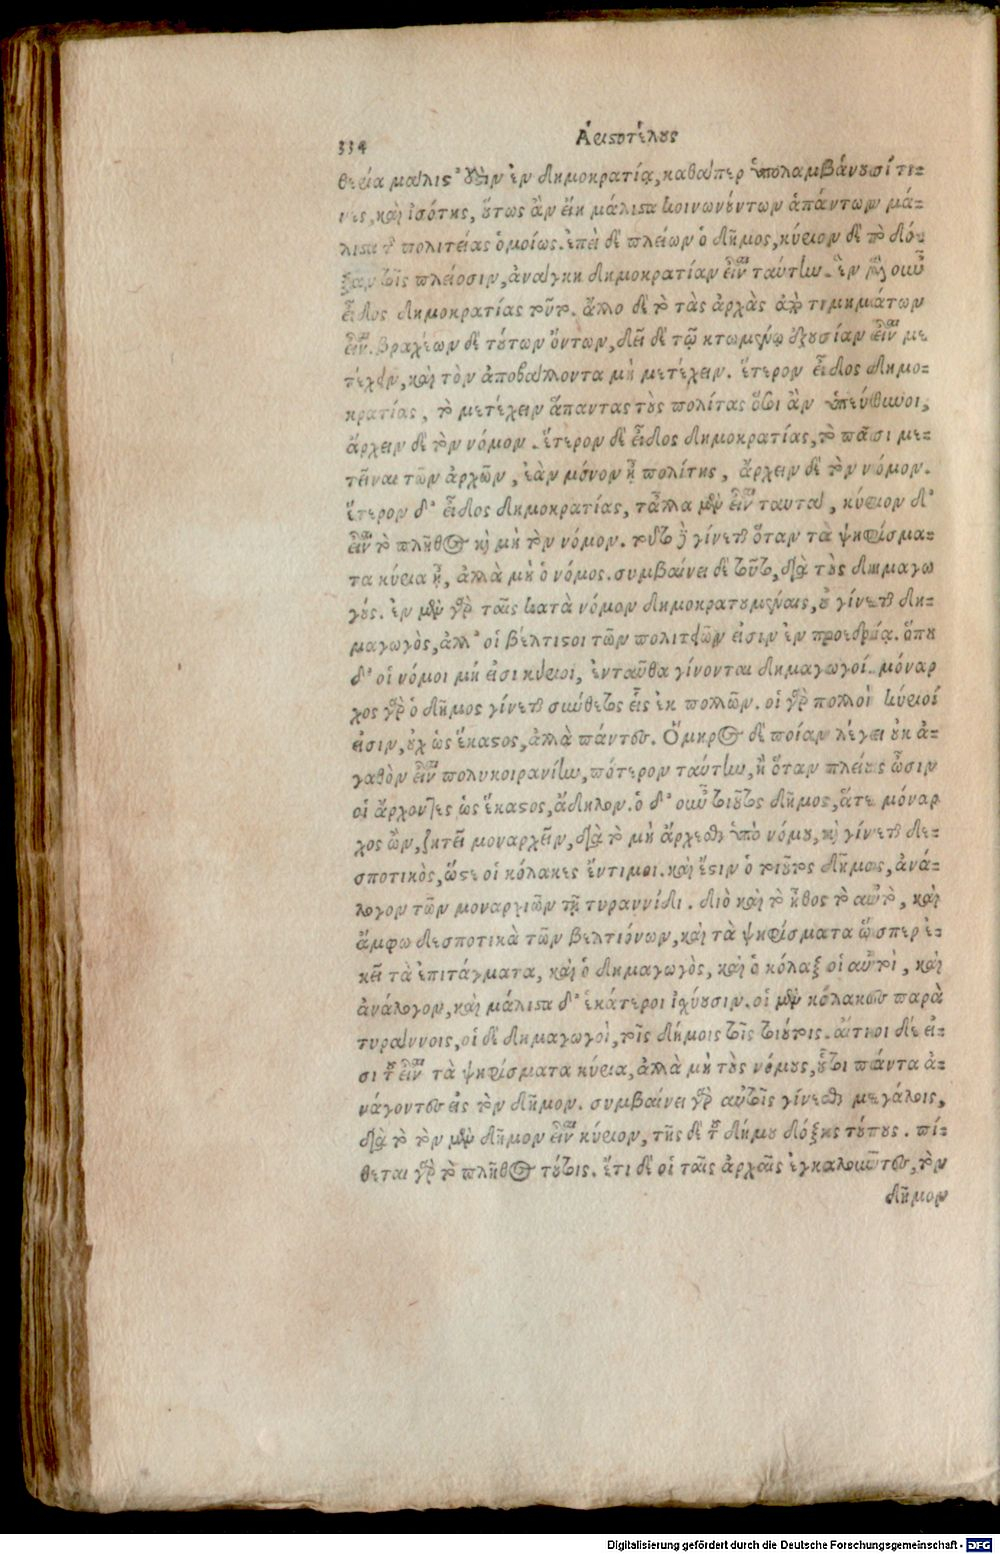 334
Ἀριστοτέλους
θερία μάλιστ' ἐστὶν ἐν δημοκρατίᾳ, καθάπερ ὑπολαμβάνουσί τι-
νες, καὶ ἰσότης, οὕτως ἂν εἴη μάλιστα κοινωνούντων ἁπάντων μά-
λιστα τῆς πολιτείας ὁμοίως. ἐπεὶ δὲ πλείων ὁ δῆμος, κύριον δὲ τὸ δό-
ξαν τοῖς πλείοσιν, ἀνάγκη δημοκρατίαν εἶναι ταύτην. ἓν μὲν οὖν
εἶδος δημοκρατίας τοῦτο. ἄλλο δὲ τὸ τὰς ἀρχὰς ἀπὸ τιμημάτων
εἶναι. βραχέων δὲ τούτων ὄντων, δεῖ δὲ τῷ κτωμένῳ ἐξουσίαν εἶναι με
τέχειν, καὶ τὸν ἀποβάλλοντα μὴ μετέχειν. ἕτερον εἶδος δημο-
κρατίας, τὸ μετέχειν ἅπαντας τοὺς πολίτας ὅσοι ἂν ὑπεύθυνοι,
ἄρχειν δὲ τὸν νόμον. ἕτερον δὲ εἶδος δημοκρατίας, τὸ πᾶσι με-
τεῖναι τῶν ἀρχῶν, ἐὰν μόνον ᾖ πολίτης, ἄρχειν δὲ τὸν νόμον.
ἕτερον δ' εἶδος δημοκρατίας, τἆλλα μὲν εἶναι ταυτὰ, κύριον δ'
εἶναι τὸ πλῆθος καὶ μὴ τὸν νόμον. τοῦτο δὲ γίνεται ὅταν τὰ ψηφίσμα-
τα κύρια ᾖ, ἀλλὰ μὴ ὁ νόμος. συμβαίνει δὲ τοῦτο, διὰ τοὺς δημαγω
γούς. ἐν μὲν γὰρ ταῖς κατὰ νόμον δημοκρατουμέναις, οὐ γίνεται δη-
μαγωγὸς, ἀλλ' οἱ βέλτιστοι τῶν πολιτῶν εἰσιν ἐν προεδρίᾳ. ὅπου
δ' οἱ νόμοι μή εἰσι κύριοι, ἐνταῦθα γίνονται δημαγωγοί. μόναρ
χος γὰρ ὁ δῆμος γίνεται σύνθετος εἷς ἐκ πολλῶν. οἱ γὰρ πολλοὶ κύριοί
εἰσιν, οὐχ ὡς ἕκαστος, ἀλλὰ πάντες. Ὅμηρος δὲ ποίαν λέγει οὐκ ἀ-
γαθὸν εἶναι πολυκοιρανίην, πότερον ταύτην, ἢ ὅταν πλείους ὦσιν
οἱ ἄρχοντες ὡς ἕκαστος, ἄδηλον. ὁ δ' οὖν τοιοῦτος δῆμος, ἅτε μόναρ
χος ὢν, ζητεῖ μοναρχεῖν, διὰ τὸ μὴ ἄρχεσθαι ὑπὸ νόμου, καὶ γίνεται δε-
σποτικὸς, ὥστε οἱ κόλακες ἔντιμοι. καὶ ἔστιν ὁ τοιοῦτος δῆμος, ἀνά-
λογον τῶν μοναρχιῶν τῇ τυραννίδι. διὸ καὶ τὸ ἦθος τὸ αὐτὸ, καὶ
ἄμφω δεσποτικὰ τῶν βελτιόνων, καὶ τὰ ψηφίσματα ὥσπερ ἐ-
κεῖ τὰ ἐπιτάγματα, καὶ ὁ δημαγωγὸς, καὶ ὁ κόλαξ οἱ αὐτοὶ, καὶ
ἀνάλογον, καὶ μάλιστα δ' ἑκάτεροι ἰσχύουσιν. οἱ μὲν κόλακες παρὰ
τυράννοις, οἱ δὲ δημαγωγοὶ, τοῖς δήμοις τοῖς τοιούτοις. αἴτιοι δέ εἰ-
σι τοῦ εἶναι τὰ ψηφίσματα κύρια, ἀλλὰ μὴ τοὺς νόμους, οὗτοι πάντα ἀ-
νάγοντες εἰς τὸν δῆμον. συμβαίνει γὰρ αὐτοῖς γίνεσθαι μεγάλοις,
διὰ τὸ τὸν μὲν δῆμον εἶναι κύριον, τῆς δὲ τοῦ δήμου δόξης τούτους. πί-
θεται γὰρ τὸ πλῆθος τούτοις. ἔτι δὲ οἱ ταῖς ἀρχαῖς ἐγκαλοῦντες, τὸν
δῆμον
Digitalisierung gefördert durch die Deutsche Forschungsgemeinschaft - DFG